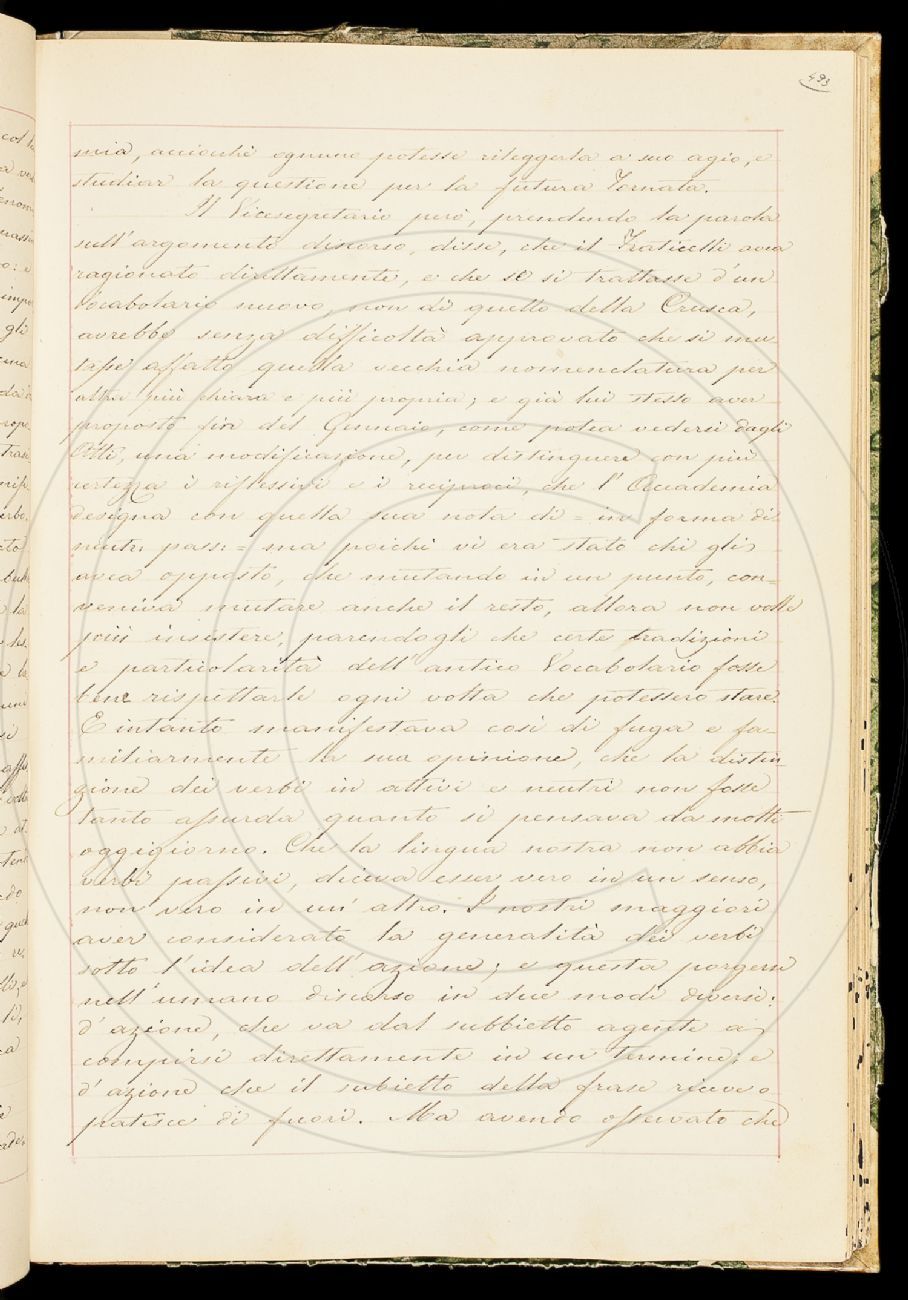 493
mia, acciocchè ognuno potesse rileggerla a suo agio, e
studiar la questione per la futura Tornata.
Il Vicesegretario però, prendendo la parola
sull'argomento discorso, disse, che il Fraticelli avea
ragionato direttamente, e che se si trattasse d'un
Vocabolario nuovo, non di quello della Crusca,
avrebbe senza difficoltà approvato che si mu
tasse affatto quella vecchia nomenclatura per
altra più chiara e più propria; e già lui stesso aver
proposto fin del Gennaio, come potea vedersi dagli
Atti, una modificazione, per distinguere con più
certezza i riflessivi e i reciproci, che l'Accademia
designa con quella sua nota di = in forma di
neutr: pass: = ma poichè vi era stato chi gli
avea opposto, che mutando in un punto, con=
veniva mutare anche il resto, allora non volle
più insistere, parendogli che certe tradizioni
e particolarità dell'antico Vocabolario fosse
bene rispettarle ogni volta che potessero stare.
E intanto manifestava così di fuga e fa=
miliarmente la sua opinione, che la distin
zione dei verbi in attivi e neutri non fosse
tanto assurda quanto si pensava da molti
oggigiorno. Che la lingua nostra non abbia
verbi passivi, diceva esser vero in un senso,
non vero in un'altro. I nostri maggiori
aver considerato la generalità dei verbi
sotto l'idea dell'azione; e questa porgersi
nell'umano discorso in due modi diversi:
d'azione, che va dal subbietto agente a
compirsi direttamente in un termine; e
d'azione che il subietto della frase riceve o
patisce di fuori. Ma avendo osservato che